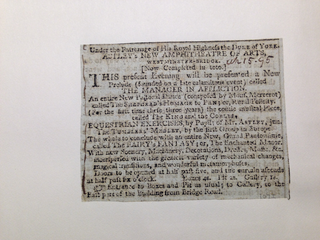 Under the Patronage of His Royal Highness the DUKE of YORK.
ASTLEY's NEW AMPHITHEATRE OF ARTS,
WESTMINSTER-BRIDGE.
[Now Completed in toto.]
THIS present Evening will be presented a New
Prelude (founded on a late calamitous event) called
THE MANAGER IN AFFLICTION.
An entire New Ballet Dance (composed by Monf. Mercerot)
called The
(For the first time these three years) the comic musical Piece,
called The KING and the COBLER.
EQUESTRIAN EXERCISES, by Pupils of Mr. ASTLEY, jun.
The TUMBLERS by the first Group in Europe
The whole to conclude with an entire New, Grand Pantomime,
called The FAIRY's FANTASY; or, The Enchanted Manor.
With new Scenery, Machinery, Decorations, Dresses, Music, &c.
interspersed with the greatest variety of mechanical changes,
magical transitions, and wonderful metamorphoses.
Doors to be opened at half past five, and the curtain ascends
at half past six o'clock. Boxes 4s. Pit 2s. Gallery 1s.
Entrance to Boxes and Pit as usual; to Gallery, to the
East part of the building from Bridge Road.